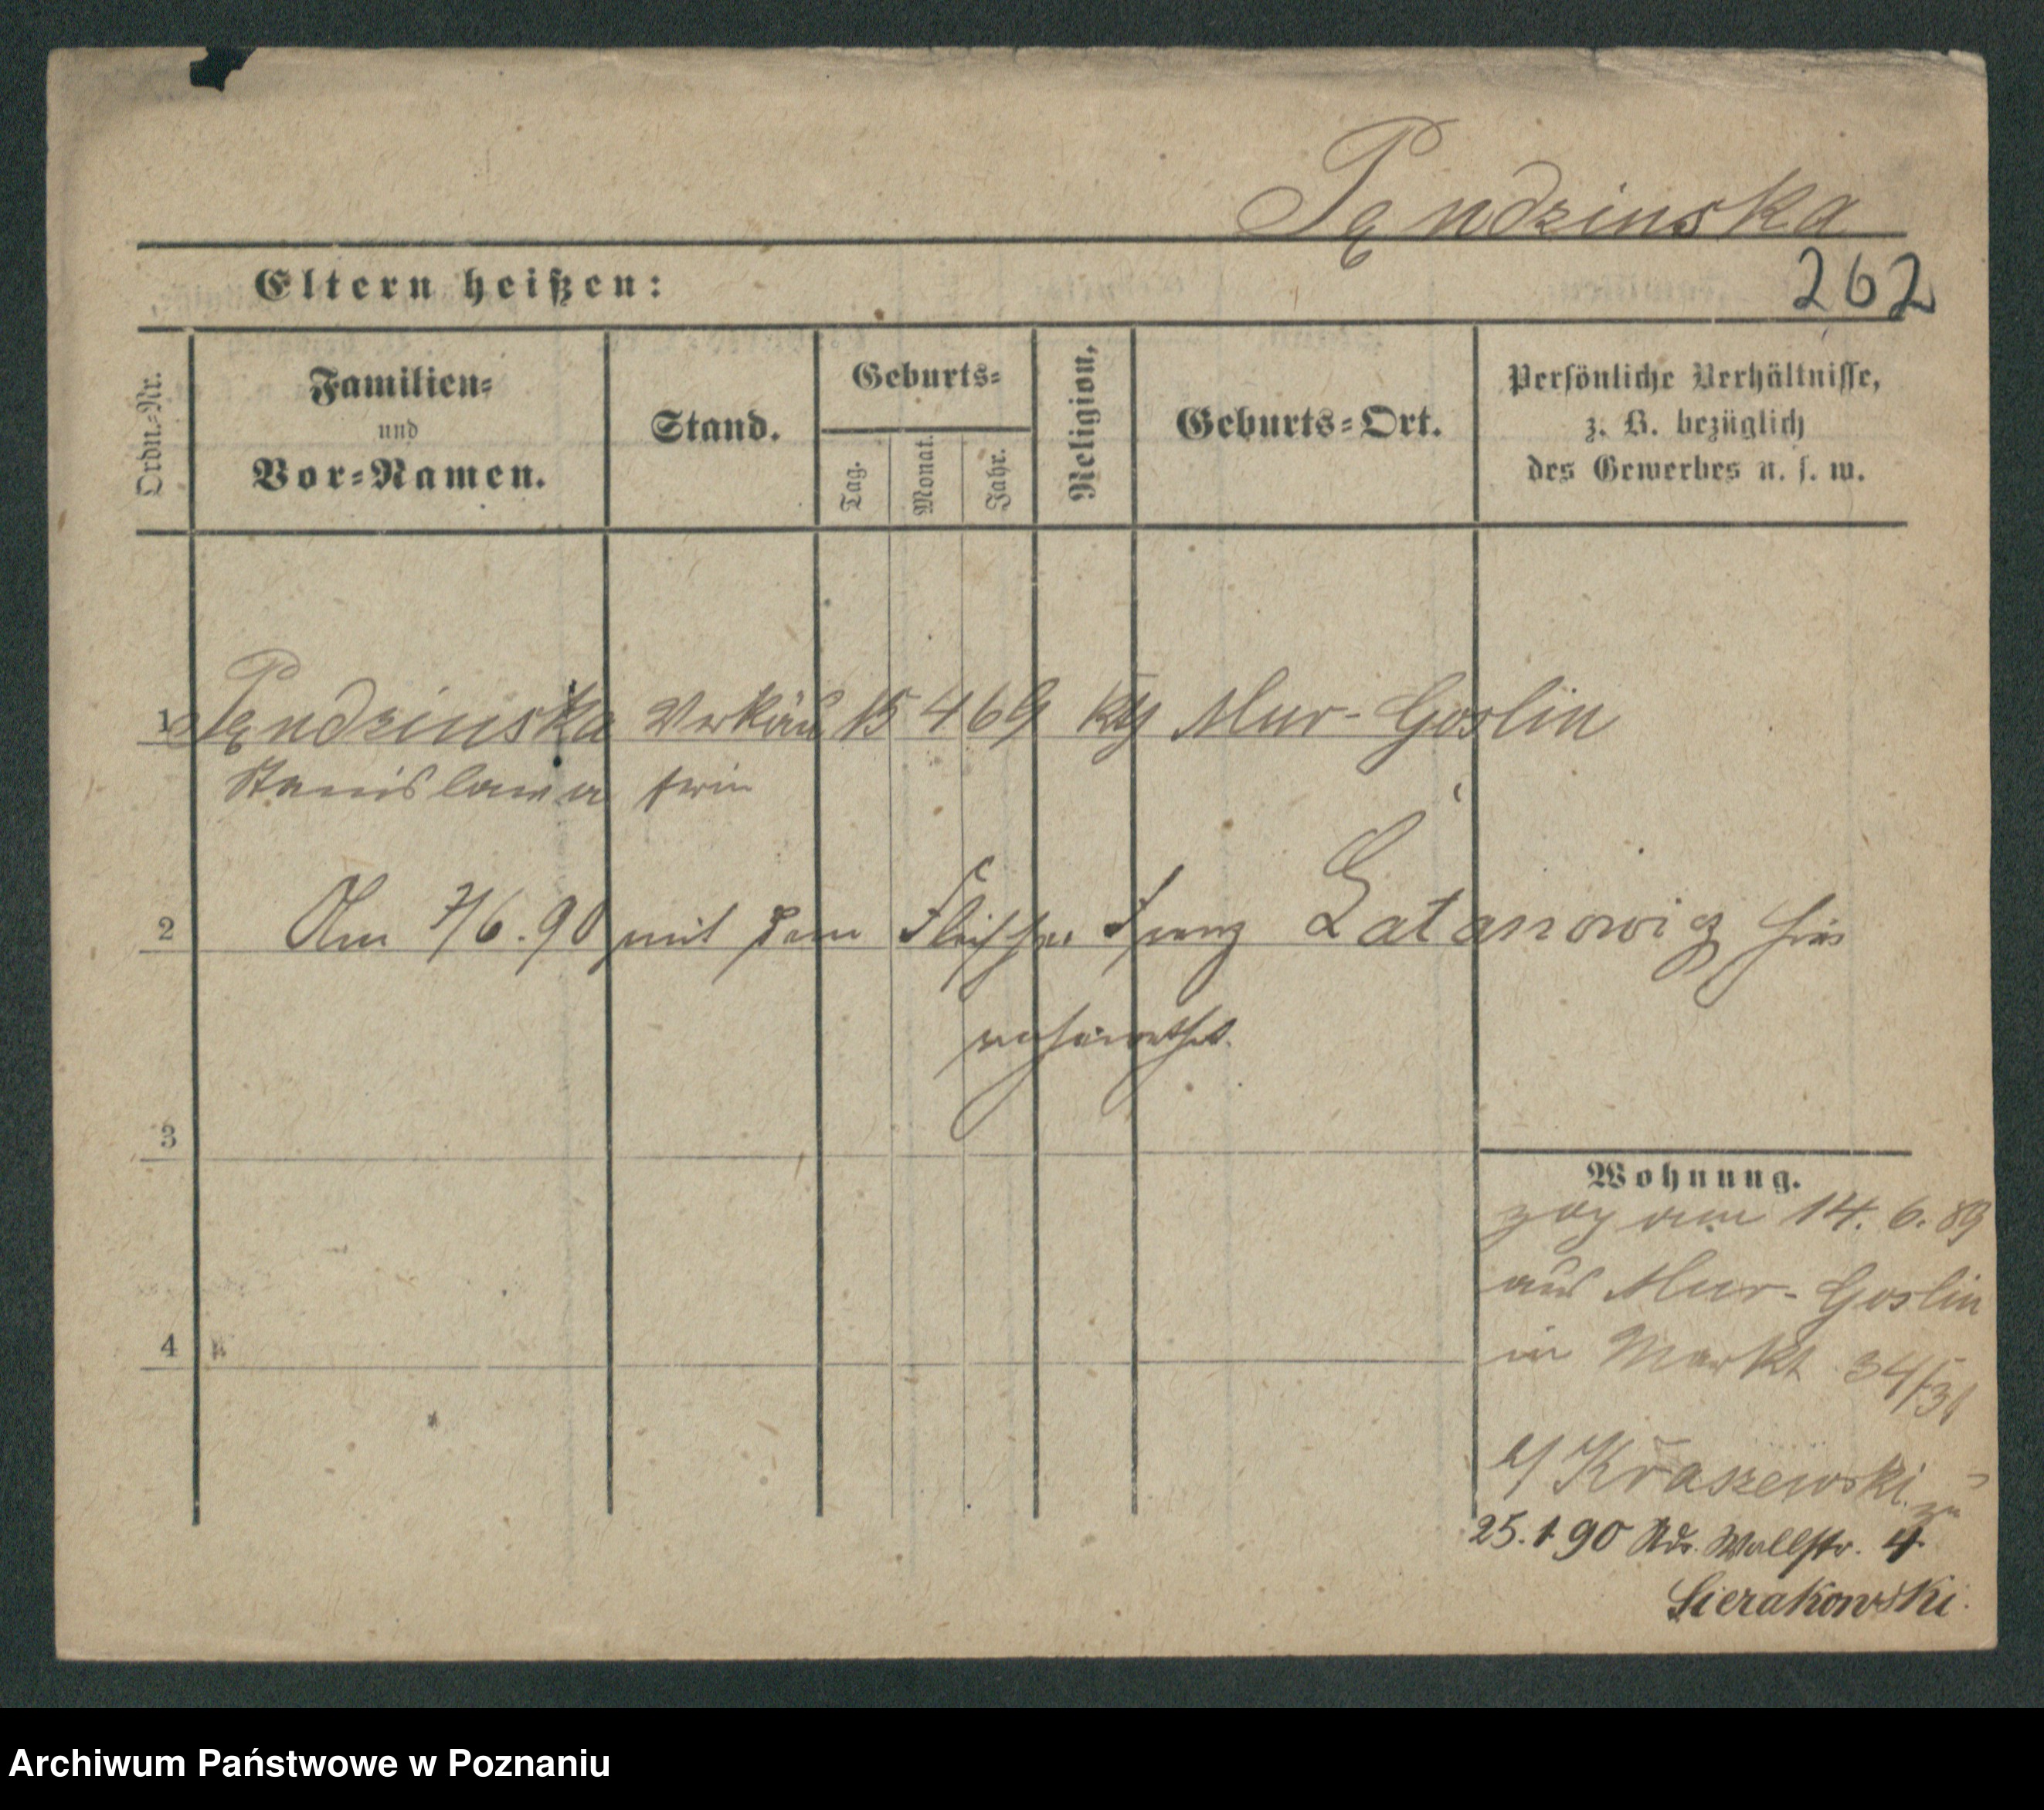 Pęndzinska
262
Eltern heißen:
Ordn.-Nr.
Familien-
und
Vor-Namen.
Stand.
Geburts-
Tag.
Monat.
Jahr.
Religion,
Geburts-Ort.
Persönliche Verhältnisse,
z. B. bezüglich
des Gewerbes u. s. w.
1 Pęndzinska Verkäu 15 4 69 kth Mur-Goslin
Stanislawa ferin
2 Am 7/6.90 mit dem Fleischer Franz Łatanowicz hier
verheirathet.
3
Wohnung.
zog am 14. 6. 89
aus Mur-Goslin
in Markt 34/31
b/ Kraszewski.
zu
4
25.1 90 Ndr. Wallstr. 4
Sierakowski.
Archiwum Państwowe w Poznaniu